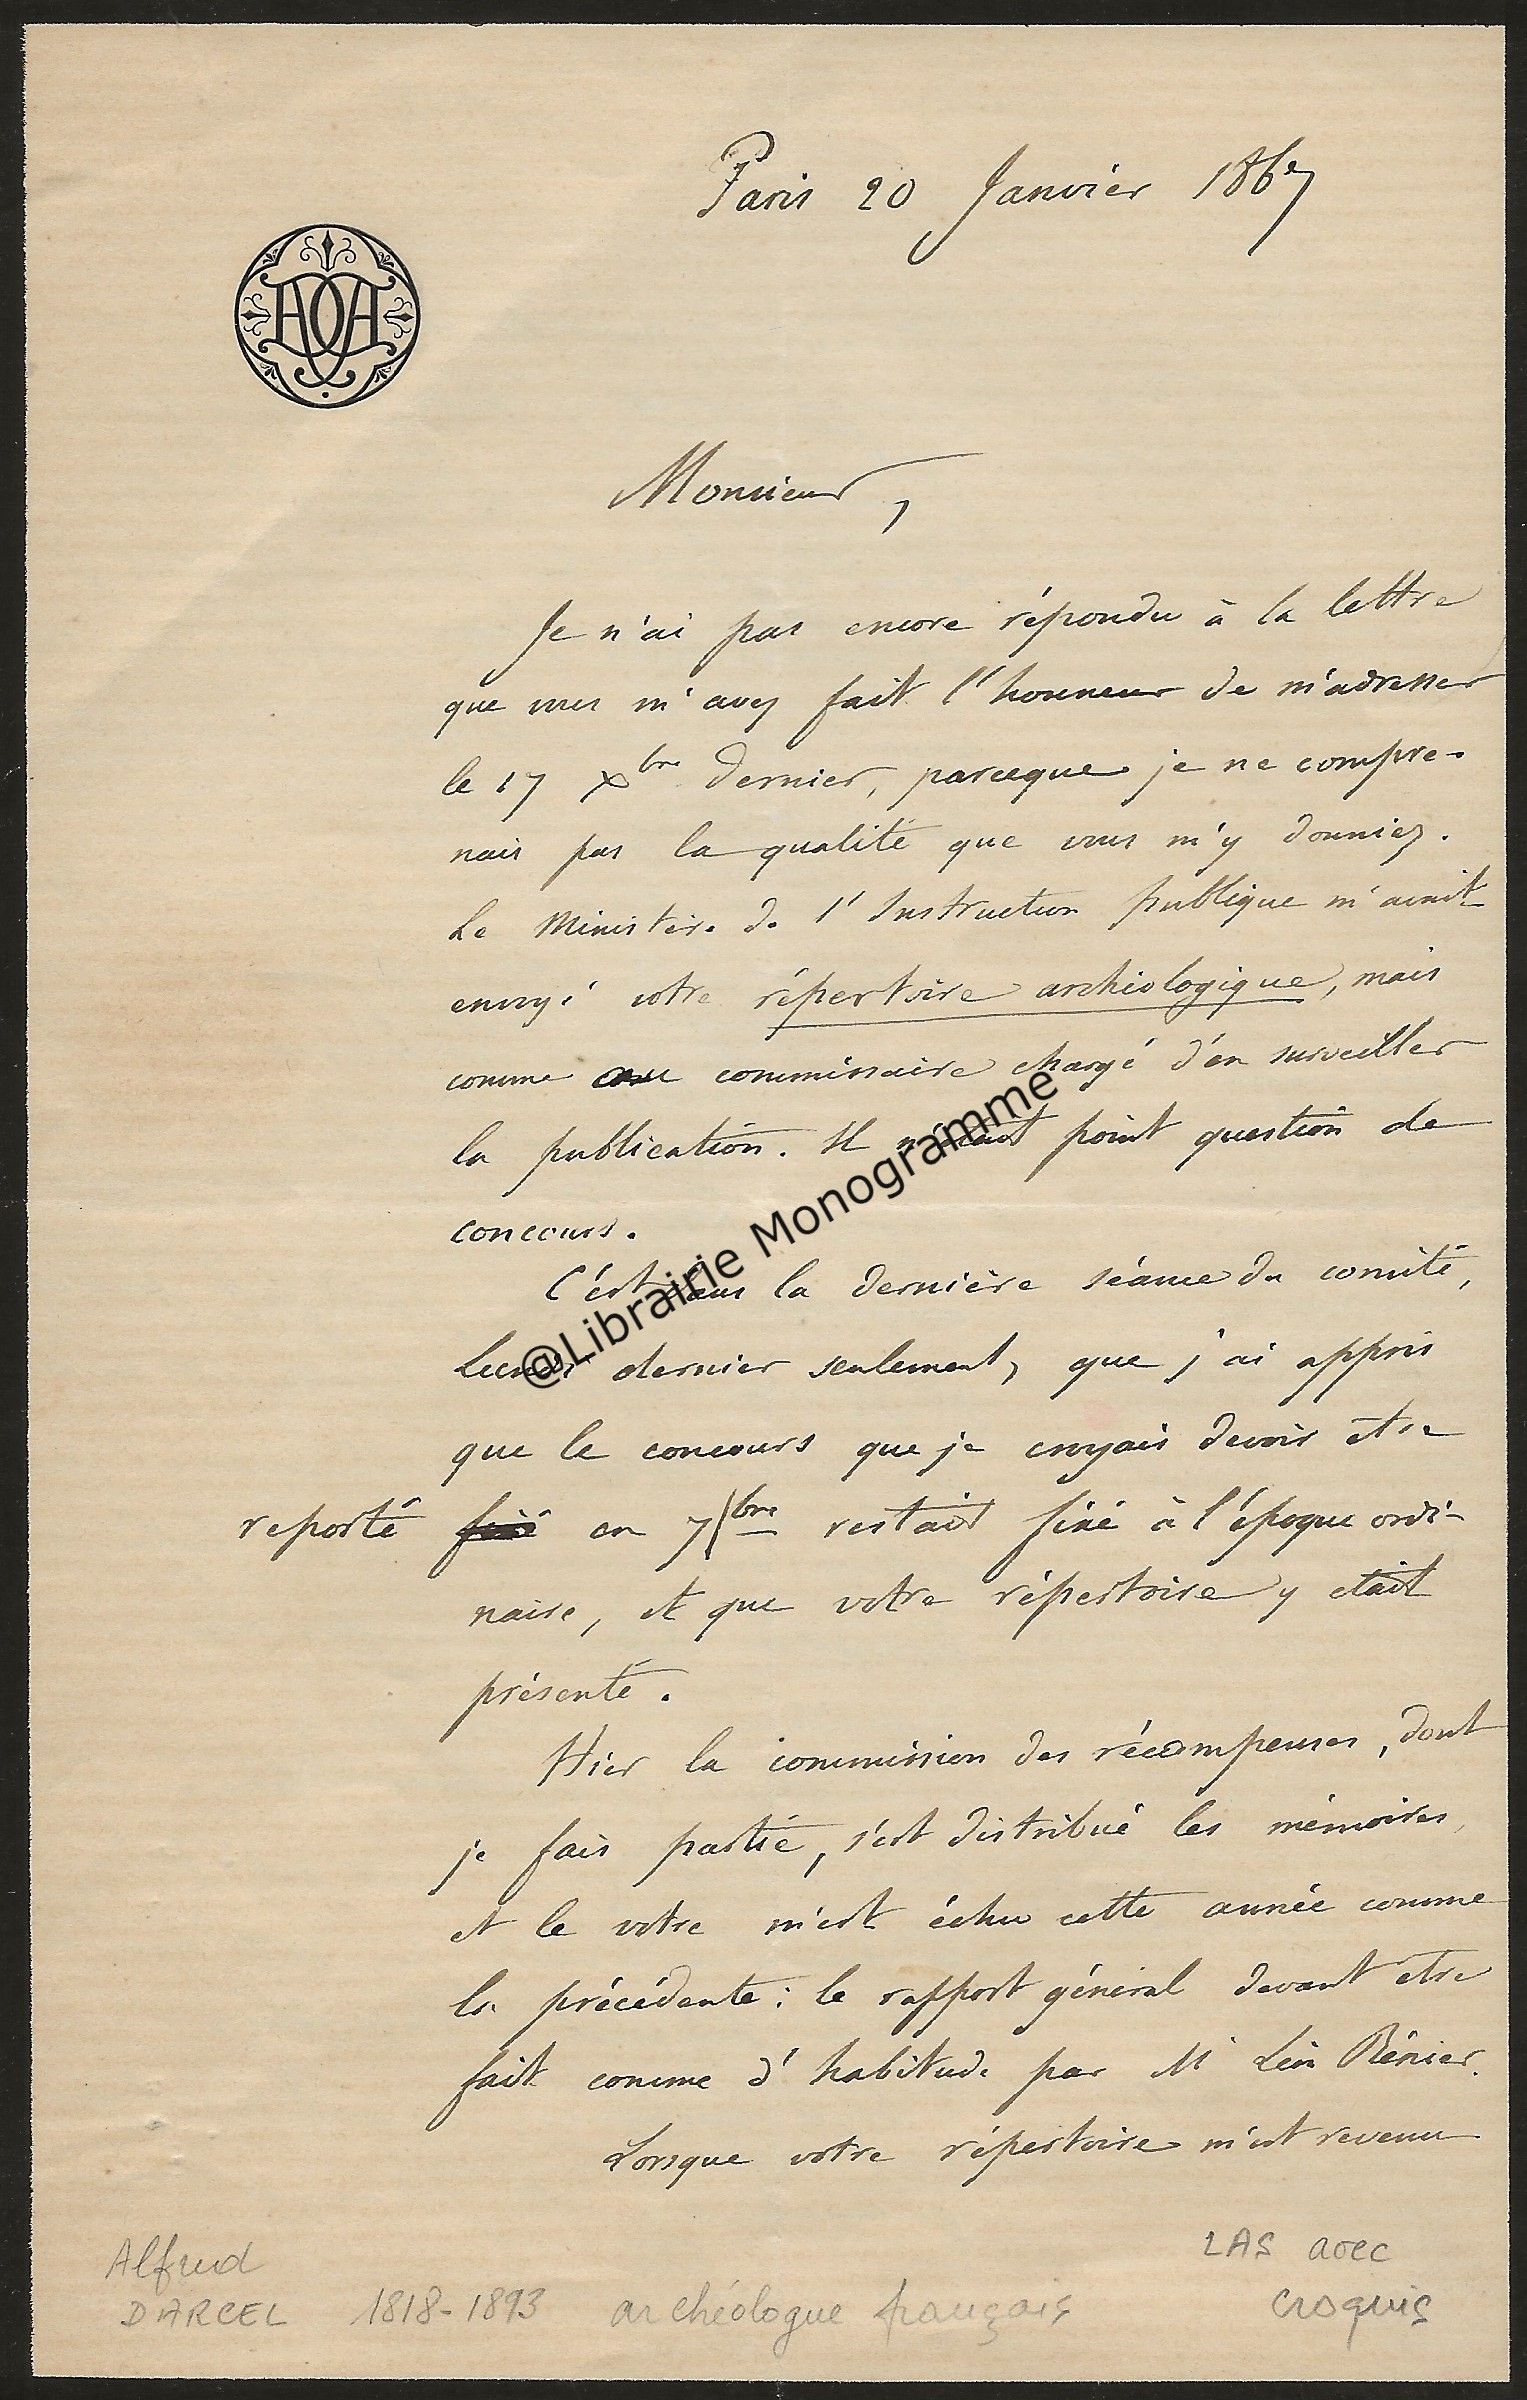 Paris 20 Janvier 1867
Monsieur,
Je n'ai pas encore répondu à la lettre
que vous m'avez fait l'honneur de m'adresser
le 17 Xbre dernier, parceque je ne compre-
nais pas la qualité que vous m'y donniez.
Le Ministère de l'Instruction publique m'avait
envoyé votre répertoire archéologique, mais
comme commissaire chargé d'en surveiller
la publication. Il n'était point question de
concours.
C'est dans la dernière séance du comité,
Lundi dernier seulement, que j'ai appris
que le concours que je croyais devoir être
reporté fixé en 7bre restait fixé à l'époque ordi-
naire, et que votre répertoire y était
présenté.
Hier la commission des récompenses, dont
je fais partie, s'est distribué les mémoires,
et le votre m'est échu cette année comme
la précédente : le rapport général devant être
fait comme d'habitude par M Léon Rénier.
Lorsque votre répertoire m'est revenu
@Librairie Monogramme
Alfred
DARCEL 1818-1893 archéologue français
LAS avec
croquis